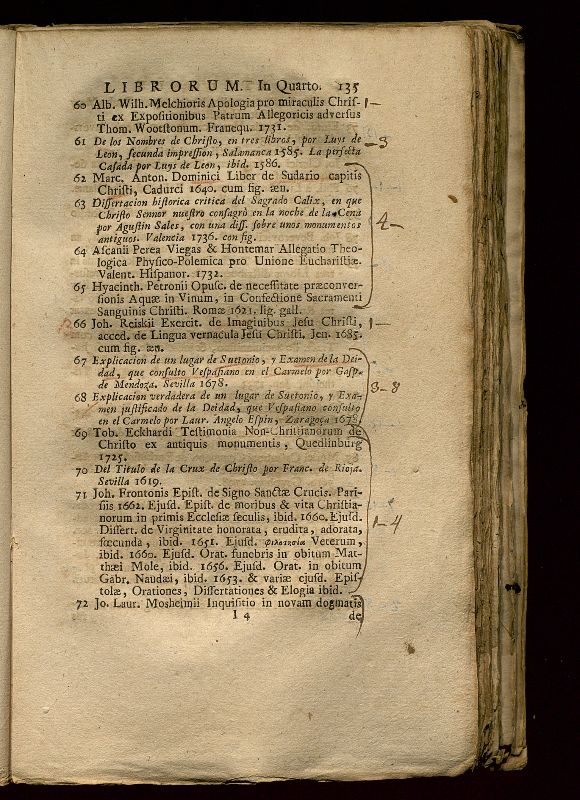 LIBRORUM. In Quarto. 135
60 Alb. Wilh. Melchioris Apologia pro miraculis Chriſ-
ti ex Expoſitionibus Patrum Allegoricis adverſus
Thom. Wootſtonum. Franequ. 1731.
1-
61 De los Nombres de Chriſto, en tres libros, por Luys de
Leon, ſecunda impreſſion, Salamanca 1585. La perfecta
Caſada por Luys de Leon, ibid. 1586.
-3
62 Marc. Anton. Dominici Liber de Sudario capitis
Chriſti, Cadurci 1640. cum fig. æn.
63 Diſſertacion hiſtorica critica del Sagrado Calix, en que
Chriſto Sennor nueſtro conſagrò en la noche de la Cena
por Aguſtin Sales, con una diſſ. ſobre unos monumentos
antiguos. Valencia 1736. con fig.
4-
64 Aſcanii Perea Viegas & Hontemar Allegatio Theo-
logica Phyſico-Polemica pro Unione Euchariſtiæ.
Valent. Hiſpanor. 1732.
65 Hyacinth. Petronii Opuſc. de neceſſitate præconver-
ſionis Aquæ in Vinum, in Confectione Sacramenti
Sanguinis Chriſti. Romæ 1621. lig. gall.
66 Joh. Reiskii Exercit. de Imaginibus Jeſu Chriſti,
acced. de Lingua vernacula Jeſu Chriſti. Jen. 1685.
cum fig. æn.
1-
67 Explicacion de un lugar de Suetonio, y Examen de la Dei-
dad, que conſulto Veſpaſiano en el Carmelo por Gaſp.
de Mendoza. Sevilla 1678.
3-8
68 Explicacion verdadera de un lugar de Suetonio, y Exa-
men juſtificado de la Deidad, que Veſpaſiano conſulto
en el Carmelo por Laur. Angelo Eſpin, Zaragoça 1678.
69 Tob. Eckhardi Teſtimonia Non-Chriſtianorum de
Chriſto ex antiquis monumentis, Quedlinburg
1725.
70 Del Titulo de la Crux de Chriſto por Franc. de Rioja.
Sevilla 1619.
71 Joh. Frontonis Epiſt. de Signo Sanctæ Crucis. Pari-
ſiis 1662. Ejuſd. Epiſt. de moribus & vita Chriſtia-
norum in primis Eccleſiæ ſeculis, ibid. 1660. Ejuſd.
Diſſert. de Virginitate honorata, erudita, adorata,
fœcunda, ibid. 1651. Ejuſd. φιλοτησία Veterum,
1-4
ibid. 1660. Ejuſd. Orat. funebris in obitum Mat-
thæi Mole, ibid. 1656. Ejuſd. Orat. in obitum
Gabr. Naudæi, ibid. 1653. & variæ ejuſd. Epiſ-
tolæ, Orationes, Diſſertationes & Elogia ibid.
72 Jo. Laur. Moshemii Inquiſitio in novam dogmatis
I 4
de